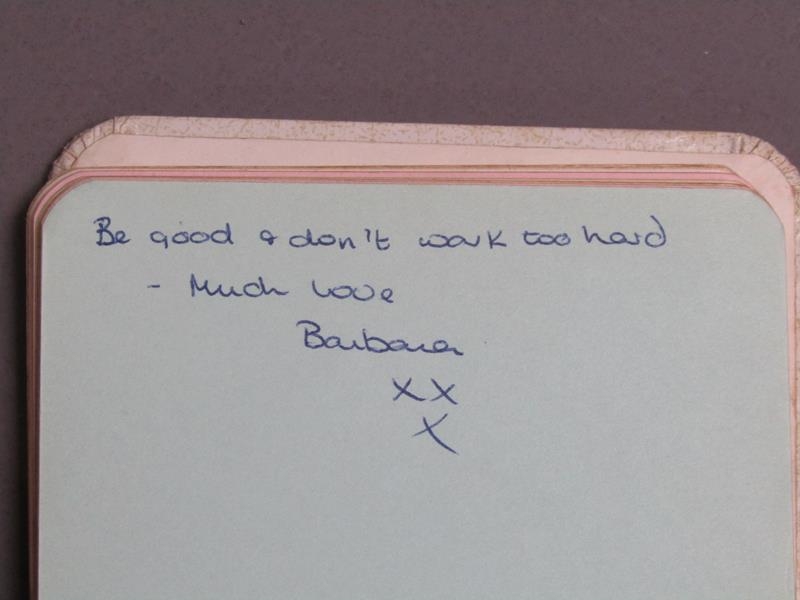 Be good & don't work too hard
- Much Love
Barbara
xx
x